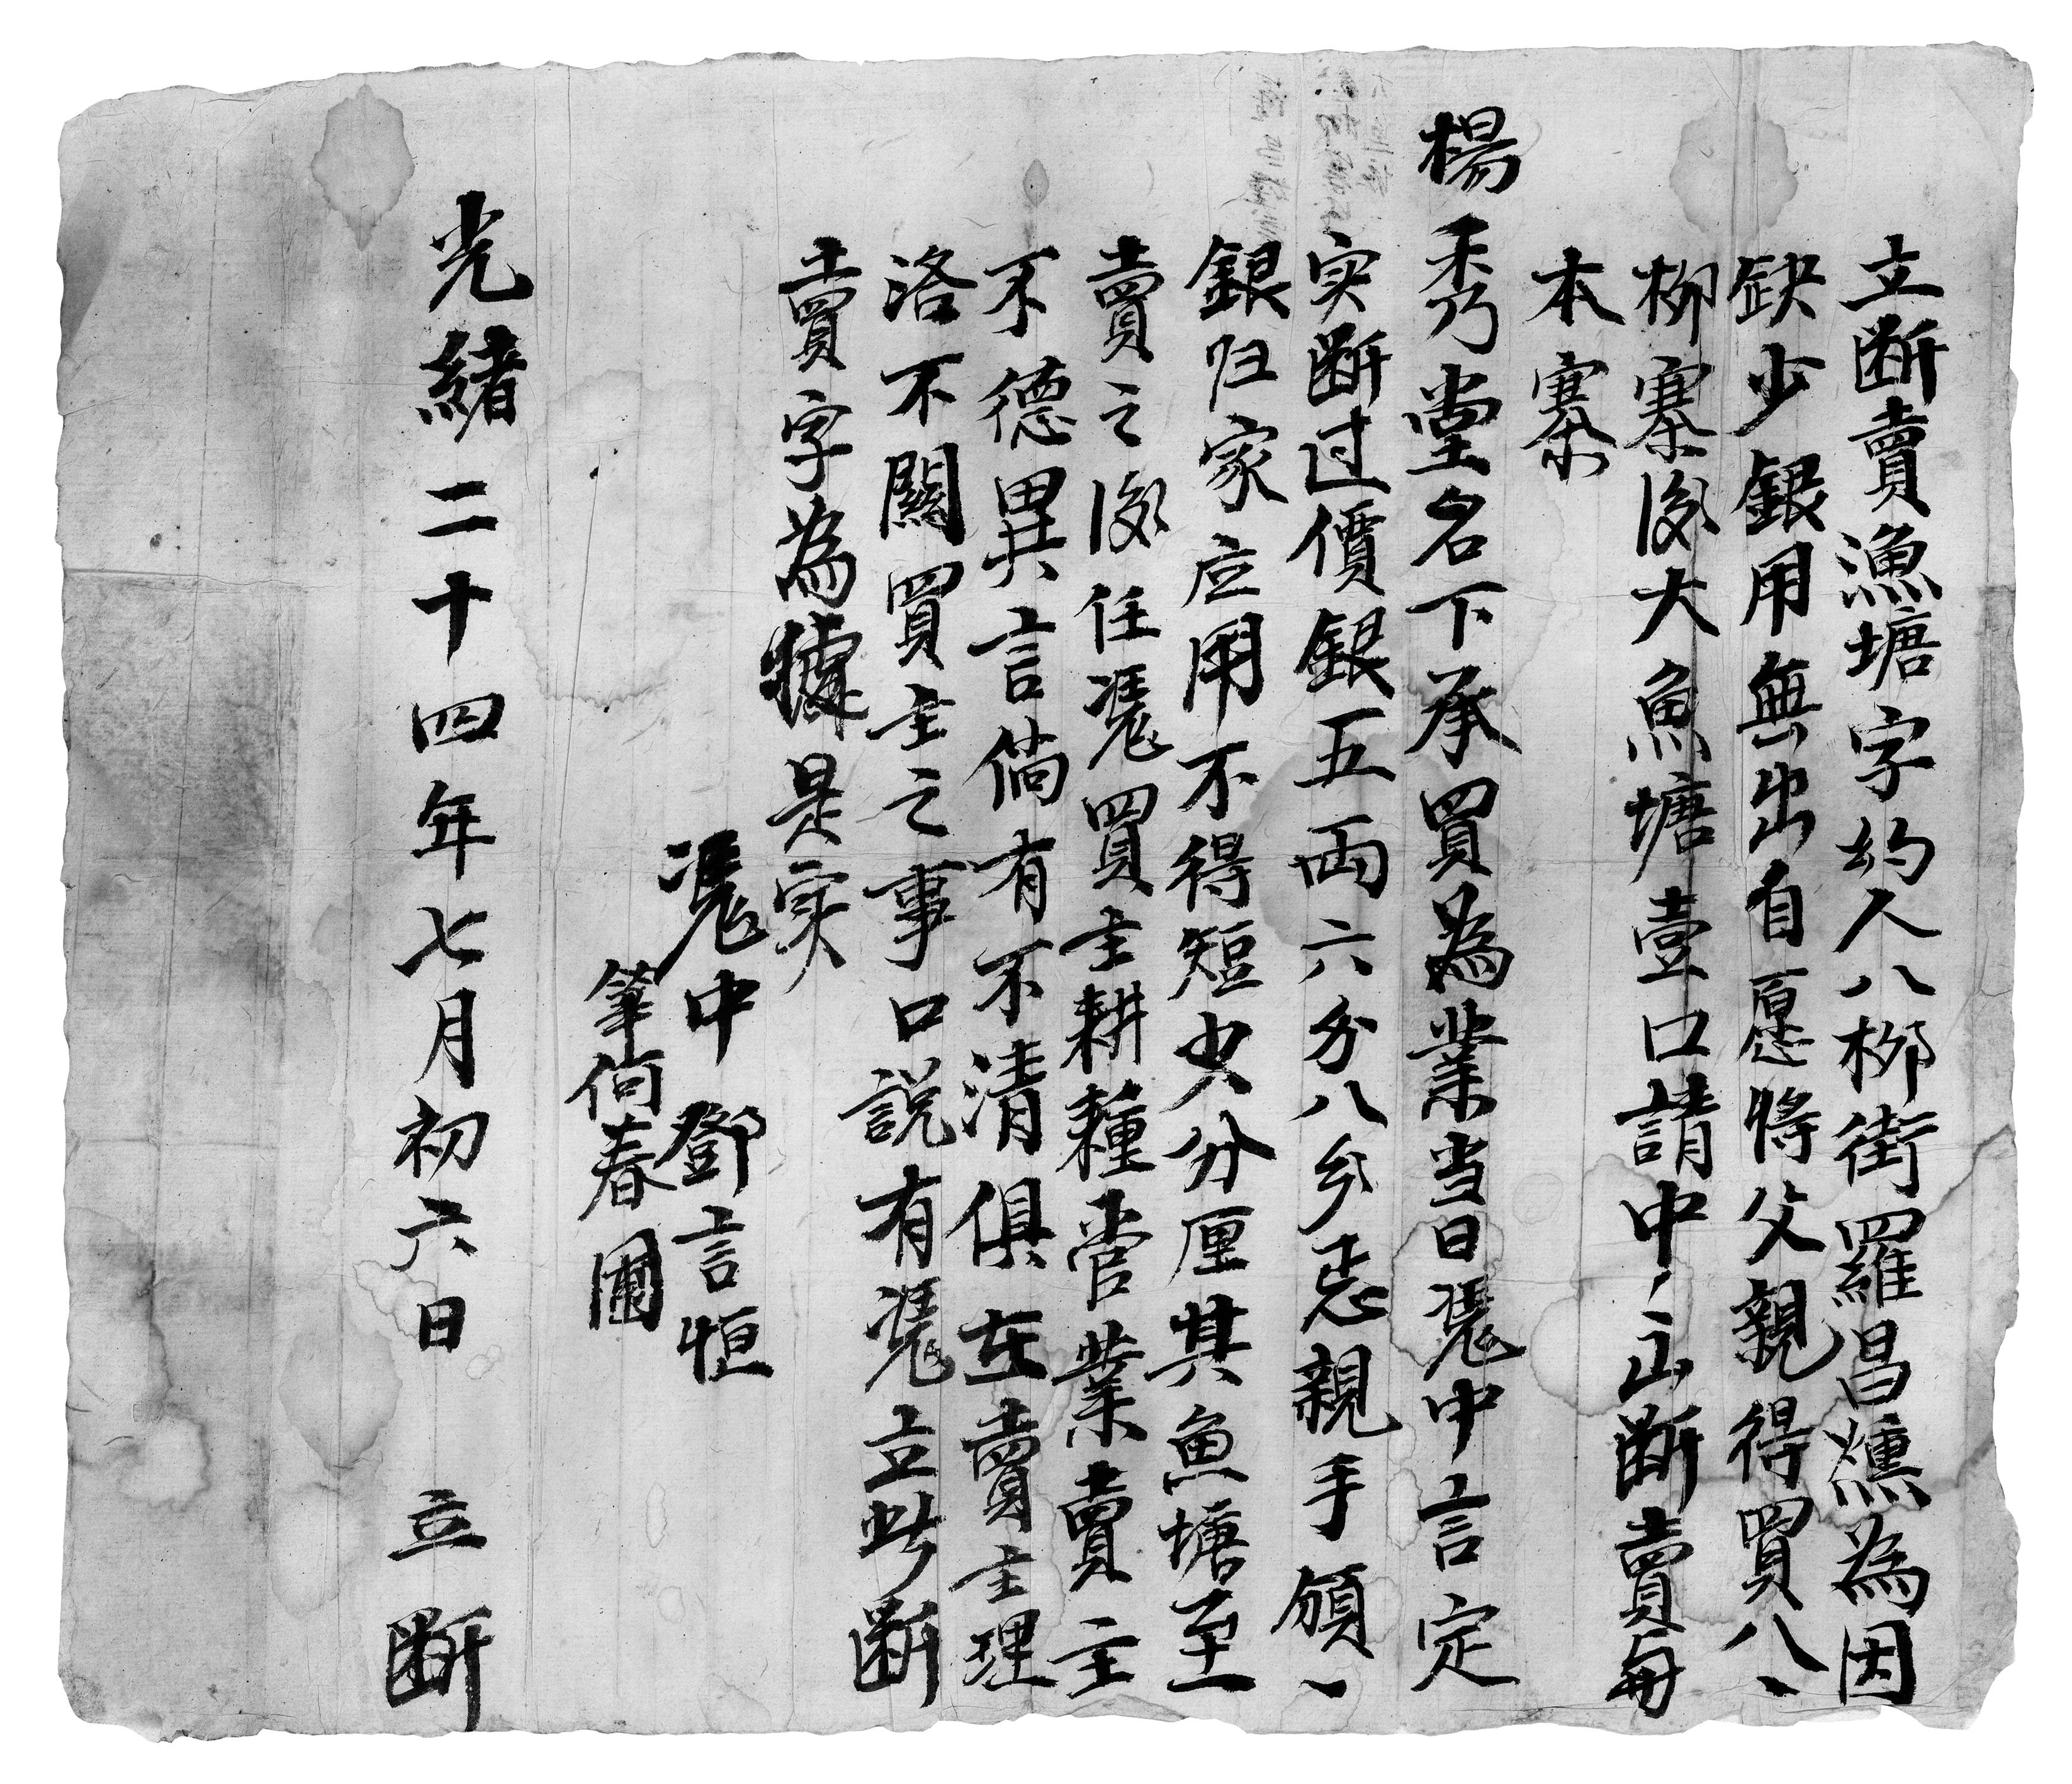 立断賣漁塘字約人八柳街羅昌燻為因
缺少銀用無出自愿将父親得買八、
柳寨後大魚塘壹口請中、立断賣与
本寨
楊秀堂名下承買為業当日凴中言定
实断过價銀五両六分八分悉親手領、
銀归家应用不得短少分厘其魚塘至
賣之後任凴買主耕種管業賣主
不德異言倘有不清俱在賣主理
洛不關買主之事口説有凴立此断
賣字為據是实
凴中鄧言恒
筆何春圃
光緒二十四年七月初六日 立断